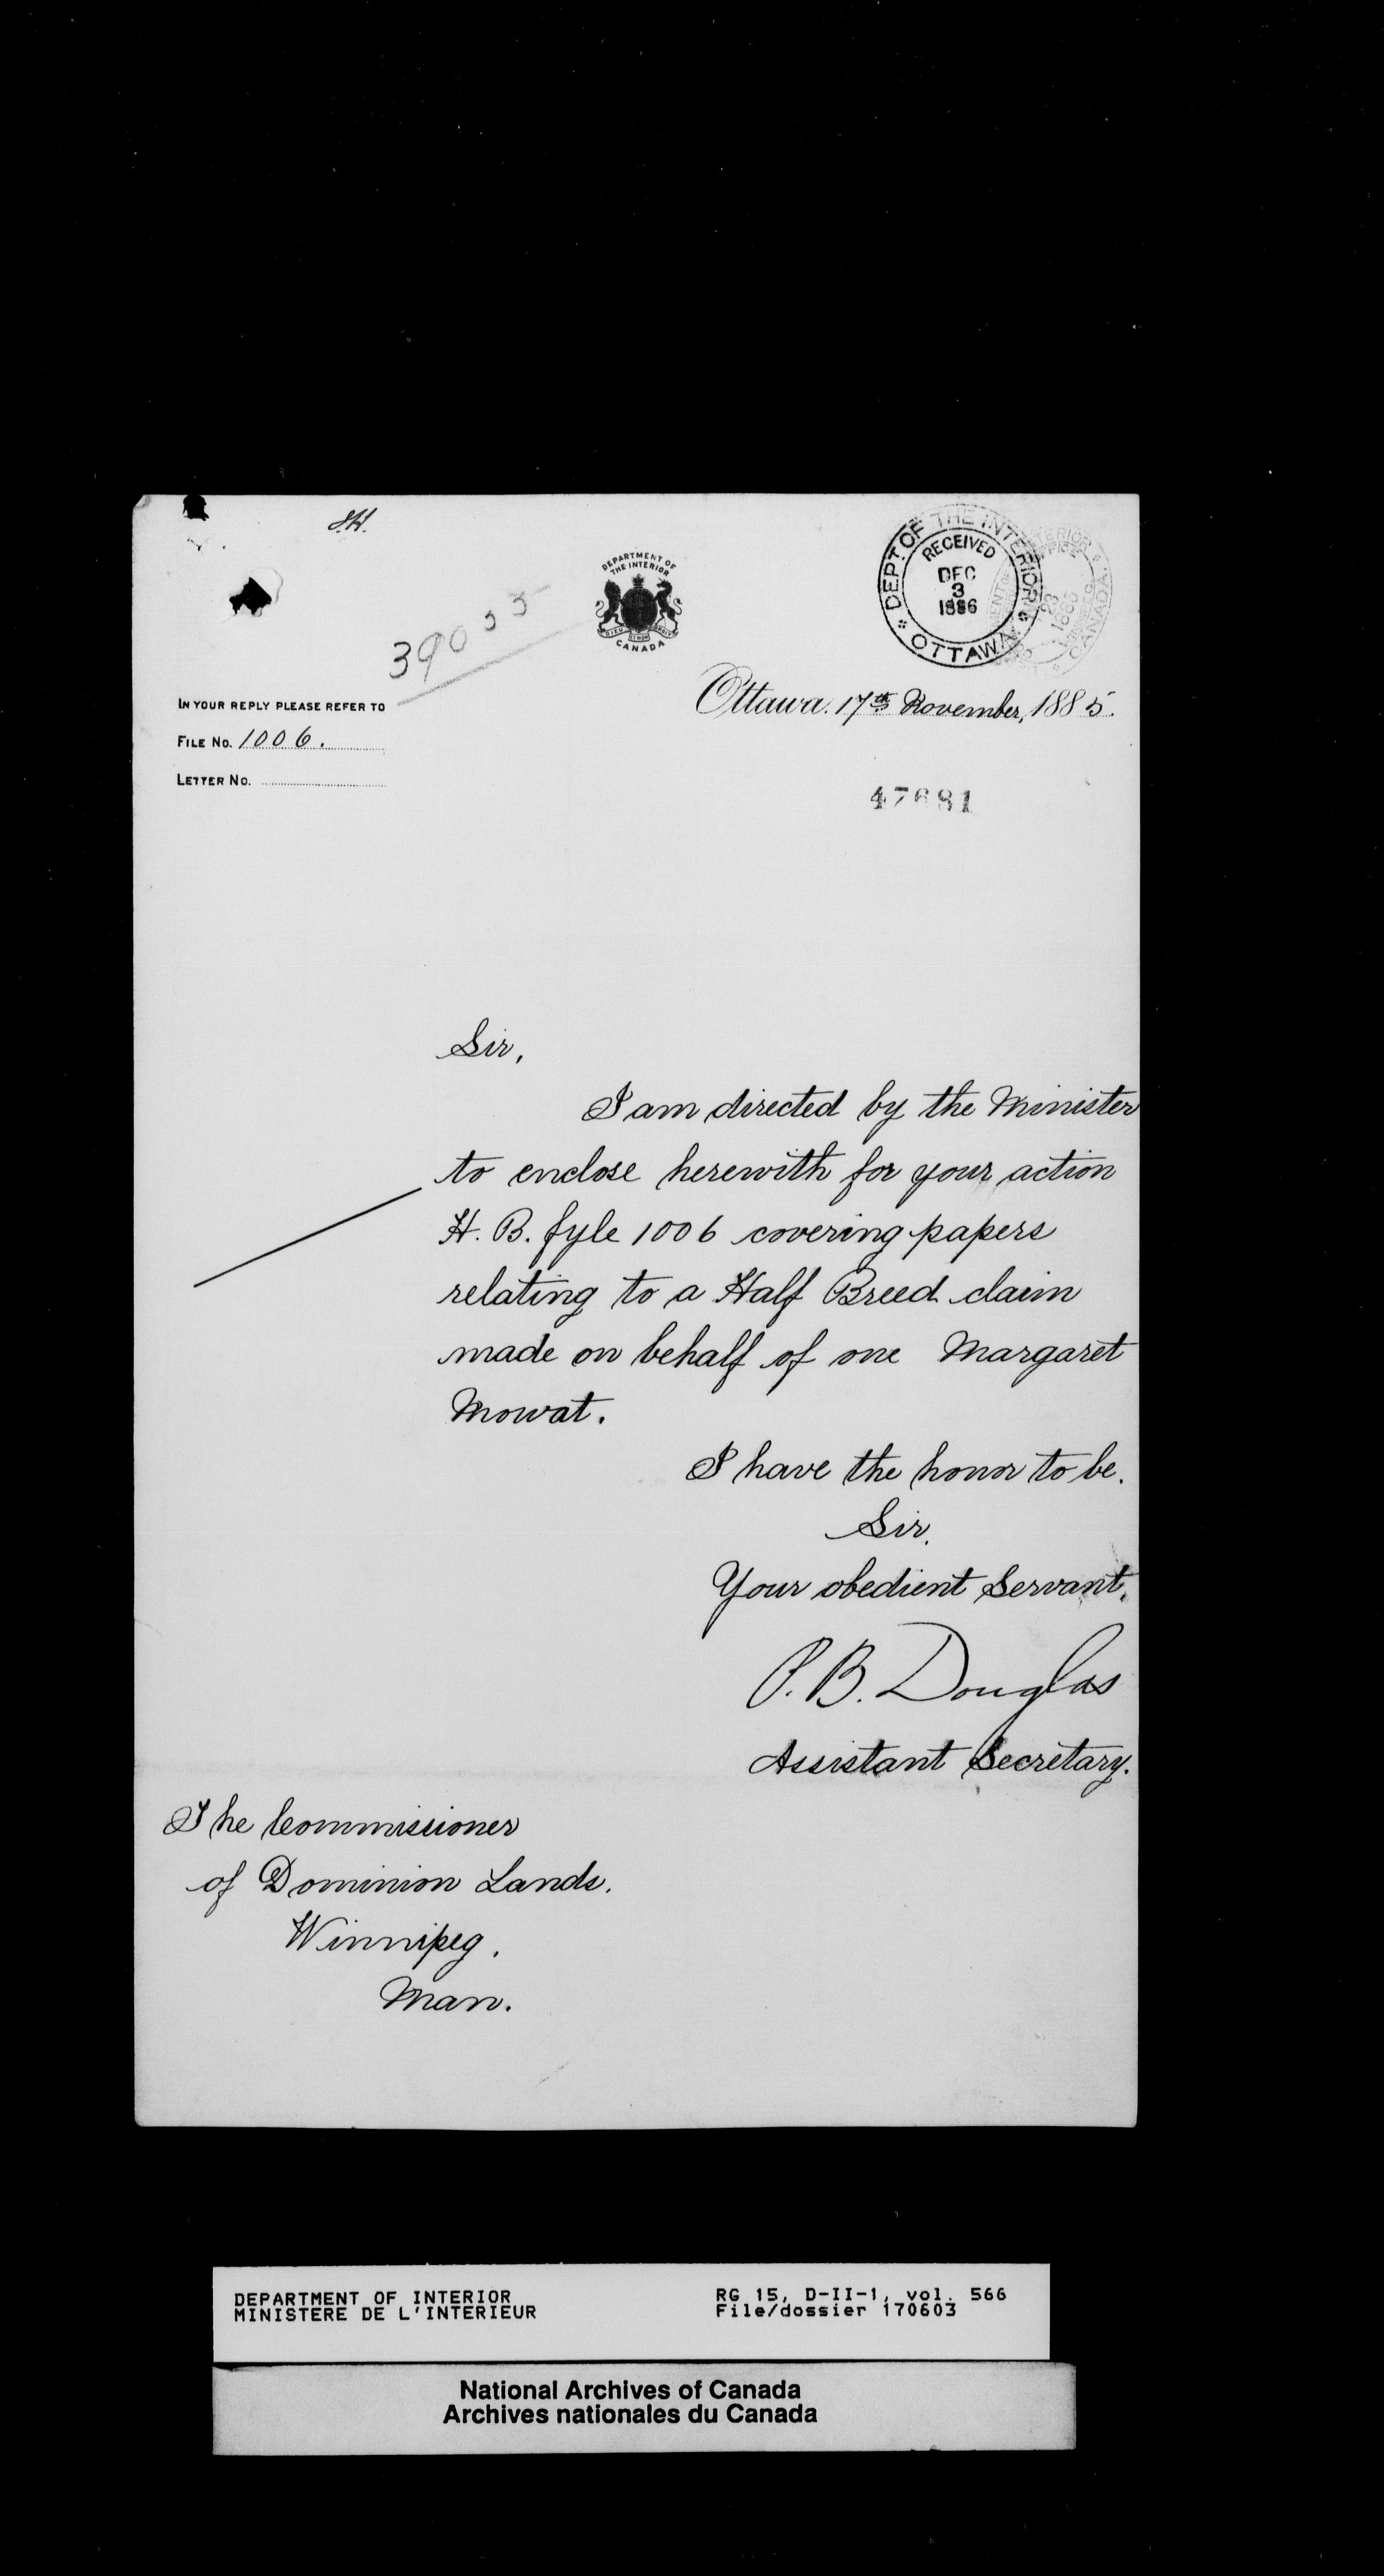 J.H.
DEPARTMENT OF
THE INTERIOR
CANADA
DEPT. OF THE INTERIOR
RECEIVED
DEC
3
1886
OTTAWA
390
IN YOUR REPLY PLEASE REFER TO
FILE No. 1006.
LETTER No.
Ottawa. 17th November, 1885.
47681
Sir,
I am directed by the Minister
to enclose herewith for your action
H. B. fyle 1006 covering papers
relating to a Half Breed claim
made on behalf of one Margaret
Mowat.
I have the honor to be.
Sir.
Your obedient Servant.
P. B. Douglas
Assistant Secretary.
The Commissioner
of Dominion Lands.
Winnipeg.
Man.
DEPARTMENT OF INTERIOR
MINISTERE DE L'INTERIEUR
RG 15, D-II-1, vol. 566
File/dossier 170603
National Archives of Canada
Archives nationales du Canada